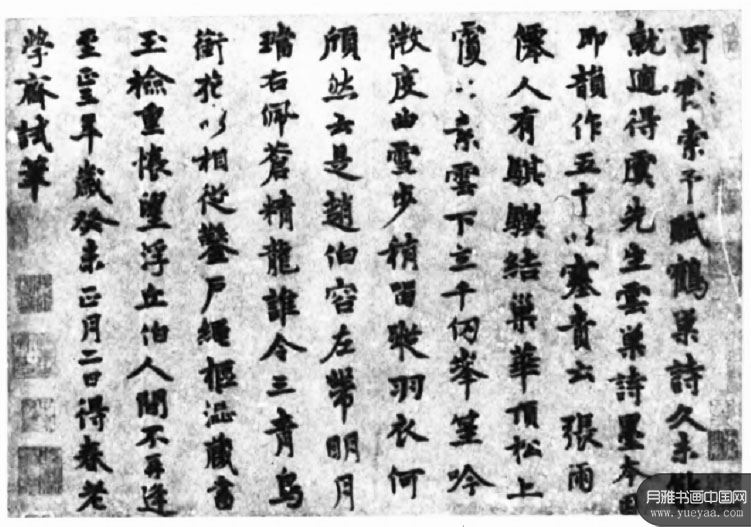 野索予賦鶴巢詩久未能
就適得虞先生雲巢詩墨本因
即韻作五十以塞責云 張雨
僊人有騏驥結巢華頂松上
霞以乘雲下立千仞峯笙吟
激度曲雲步稍留蹤羽衣何
頎然云是趙伯容左帶明月
璫右佩蒼精龍誰令三青鳥
銜花以相從鑿戶繩樞澁藏書
玉檢重悵望浮丘伯人間不再逢
至正三年歲癸未正月二日得春老
學齋試筆
月雅书画中国网
www.yueyaa.com